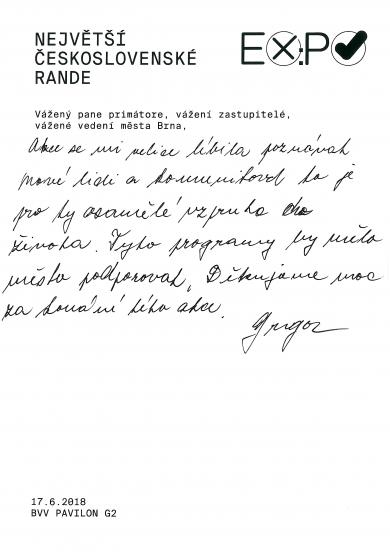 NEJVĚTŠÍ
ČESKOSLOVENSKÉ
RANDE
EX:PO
Vážený pane primátore, vážení zastupitelé,
vážené vedení města Brna,
Akce se mi velice líbila poznávat
nové lidi a komunikovat to je
pro ty osamělé vzpruha do
života. Tyto programy by mělo
město podporovat, Děkujeme moc
za konání této akce.
Grigor
17.6.2018
BVV PAVILON G2